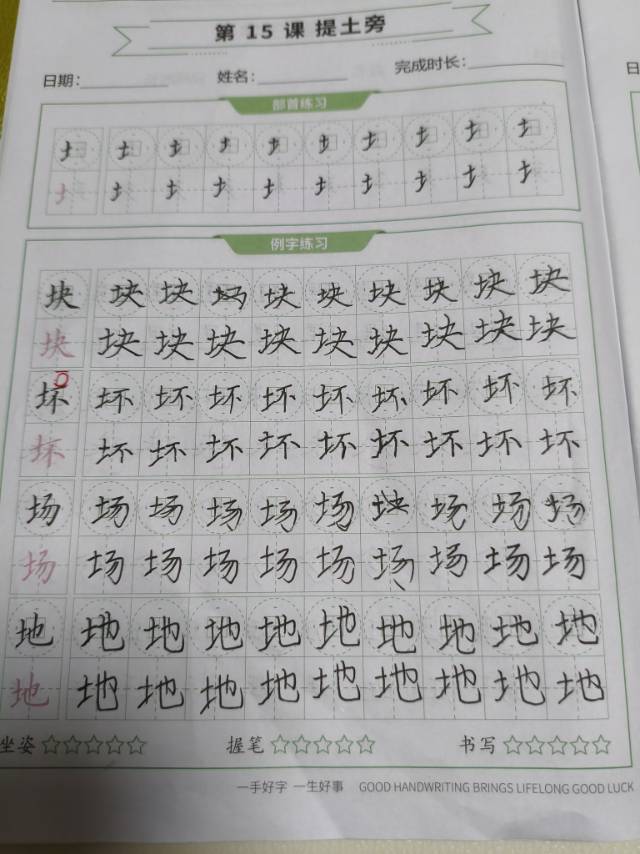 第 15 课 提土旁
日期: 姓名: 完成时长:
部首练习
扌 扌 扌 扌 扌 扌 扌 扌 扌 扌
扌 扌 扌 扌 扌 扌 扌 扌 扌 扌
例字练习
块 块 块 场 块 块 块 块 块 块
块 块 块 块 块 块 块 块 块 块
坏 坏 坏 坏 坏 坏 坏 坏 坏 坏
坏 坏 坏 坏 坏 坏 坏 坏 坏 坏
场 场 场 场 场 场 块 场 场 场
场 场 场 场 场 场 场 场 场 场
地 地 地 地 地 地 地 地 地 地
地 地 地 地 地 地 地 地 地 地
坐姿☆☆☆☆☆ 握笔☆☆☆☆☆ 书写☆☆☆☆☆
一手好字 一生好事 GOOD HANDWRITING BRINGS LIFELONG GOOD LUCK
日